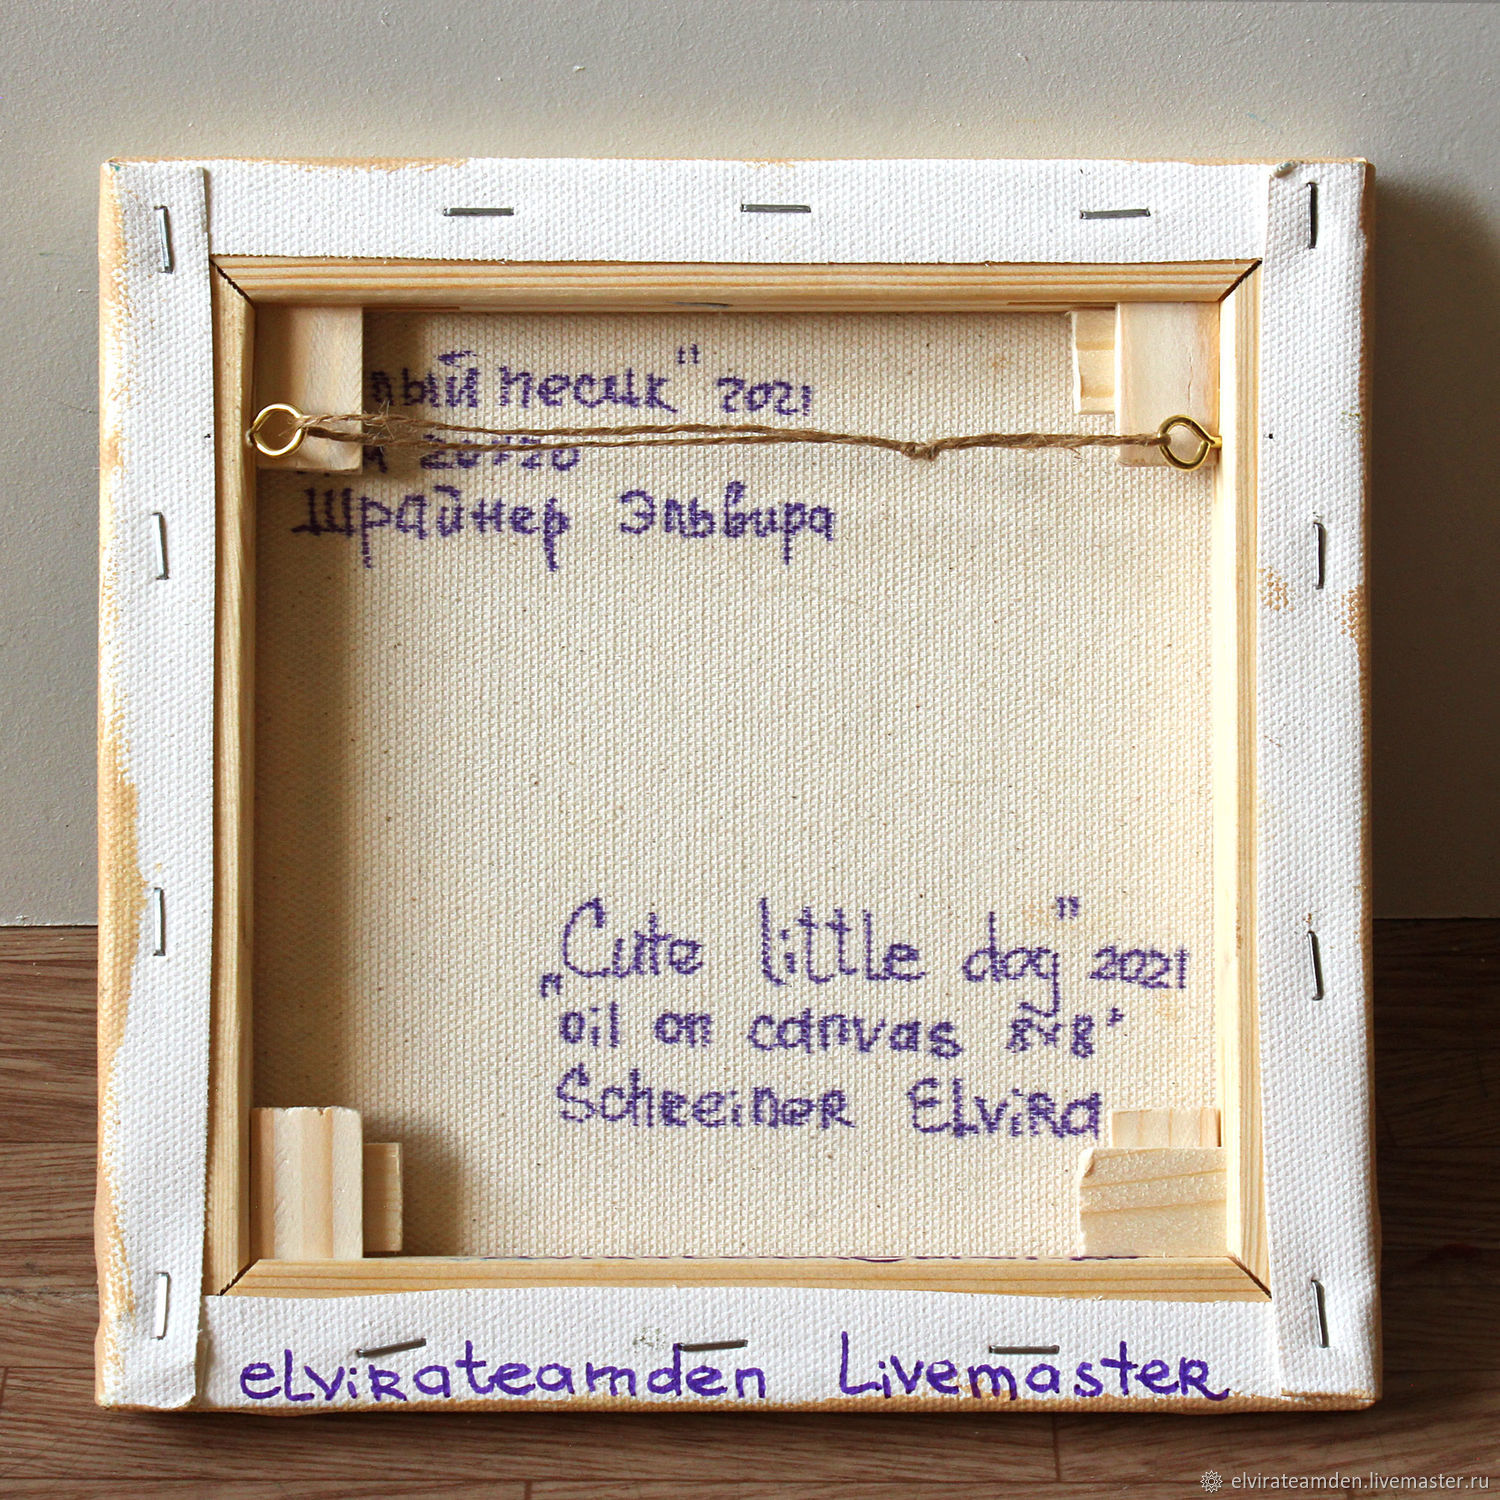 лый песик" 2021
20*20
Шрайнер Эльвира
„Cute little dog" 2021
oil on canvas 8*8"
Schreiner Elvira
elvirateamden Livemaster
elvirateamden.livemaster.ru